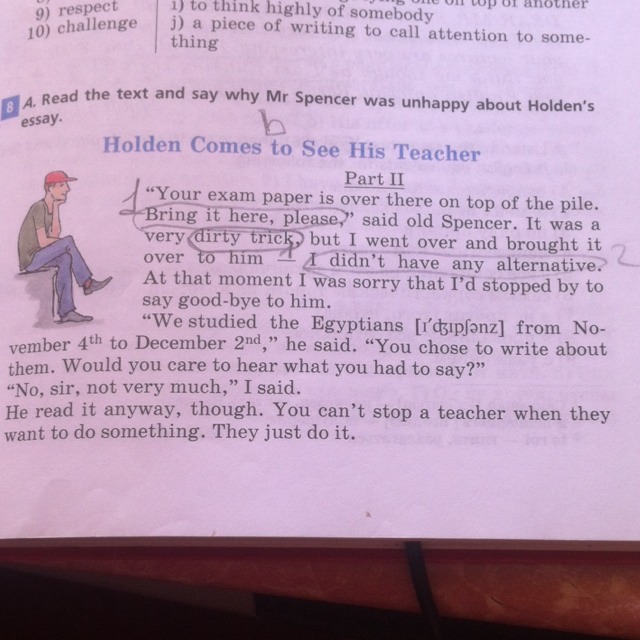 9) respect
10) challenge
one on top of another
i) to think highly of somebody
j) a piece of writing to call attention to some-
thing
8 A. Read the text and say why Mr Spencer was unhappy about Holden's
essay.
b
Holden Comes to See His Teacher
Part II
1 “Your exam paper is over there on top of the pile.
Bring it here, please,” said old Spencer. It was a
very dirty trick, but I went over and brought it
over to him — I didn't have any alternative. 2
At that moment I was sorry that I'd stopped by to
say good-bye to him.
“We studied the Egyptians [ɪˈʤɪpʃənz] from No-
vember 4th to December 2nd,” he said. “You chose to write about
them. Would you care to hear what you had to say?”
“No, sir, not very much,” I said.
He read it anyway, though. You can't stop a teacher when they
want to do something. They just do it.